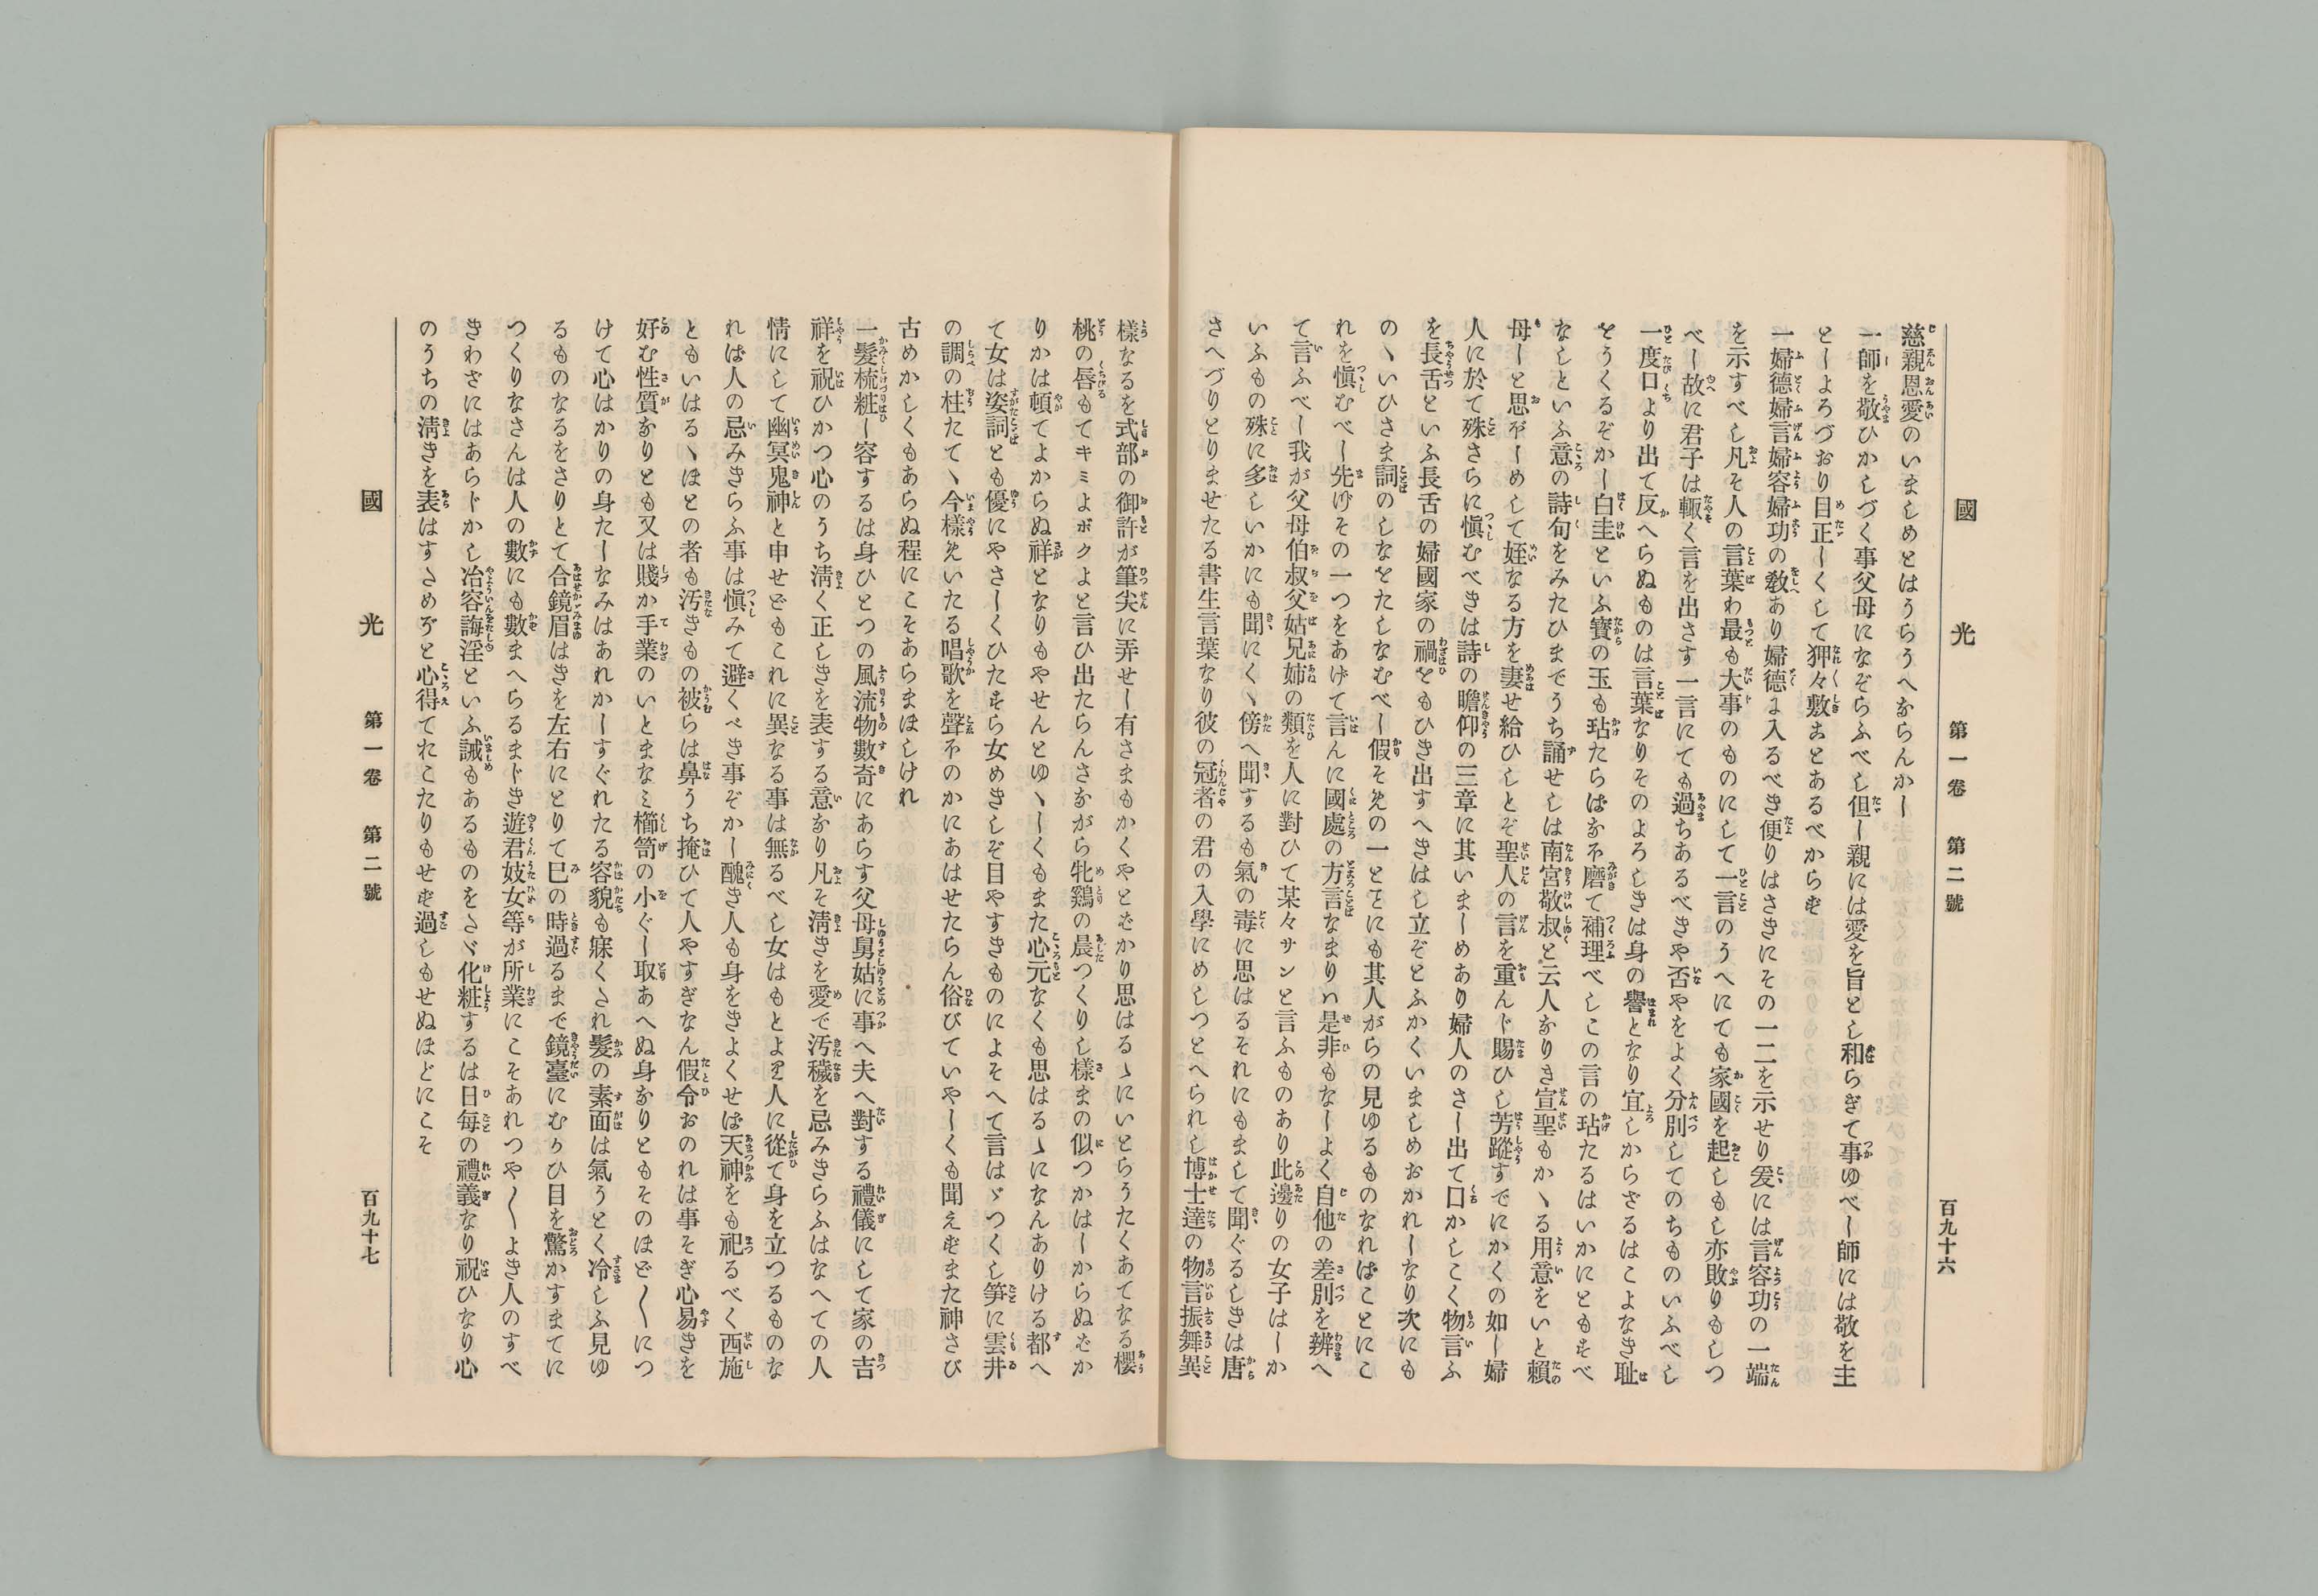 國光 第一卷 第二號 百九十六
慈親恩愛のいましめとはうらうへならんかし
一師を敬ひかしづく事父母になぞらふべし但し親には愛を旨とし和らぎて事ゆべし師には敬を主
としよろづおり目正しくして狎々敷ことあるべからず
一婦德婦言婦容婦功の敎あり婦德に入るべき便りはさきにその一二を示せり爰には言容功の一端
を示すべし凡そ人の言葉わ最も大事のものにして一言のうへにても家國を起しもし亦敗りもしつ
べし故に君子は輙く言を出さす一言にても過ちあるべきや否やをよく分別してのちものいふべし
一度口より出て反へらぬものは言葉なりそのよろしきは身の譽となり宜しからざるはこよなき耻
をうくるぞかし白圭といふ寶の玉も玷たらばなほ磨て補理べしこの言の玷たるはいかにともすべ
なしといふ意の詩句をみたひまでうち誦せしは南宮敬叔と云人なりき宣聖もかゝる用意をいと賴
母しと思ぞしめして姪なる方を妻せ給ひしとぞ聖人の言を重んじ賜ひし芳蹤すでにかくの如し婦
人に於て殊さらに愼むべきは詩の瞻仰の三章に其いましめあり婦人のさし出て口かしこく物言ふ
を長舌といふ長舌の婦國家の禍をもひき出すへきはし立ぞとふかくいましめおかれしなり次にも
のゝいひさま詞のしなをたしなむべし假そめの一とことにも其人がらの見ゆるものなればことにこ
れを愼むべし先げその一つをあげて言んに國處の方言なまりハ是非もなしよく自他の差別を辨へ
て言ふべし我が父母伯叔父姑兄姉の類を人に對ひて某々サンと言ふものあり此邊りの女子はしか
いふもの殊に多しいかにも聞にくゝ傍へ聞するも氣の毒に思はるそれにもまして聞ぐるしきは唐
さへづりとりませたる書生言葉なり彼の冠者の君の入學にめしつとへられし博士達の物言振舞異
樣なるを式部の御許が筆尖に弄せし有さまもかくやとばかり思はるゝにいとらうたくあてなる櫻
桃の唇もてキミよボクよと言ひ出たらんさながら牝鷄の晨つくりし樣まの似つかはしからぬばか
りかは頓てよからぬ祥となりもやせんとゆゝしくもまた心元なくも思はるゝになんありける都へ
て女は姿詞とも優にやさしくひたすら女めきしぞ目やすきものによそへて言はゞつくし箏に雲井
の調の柱たてゝ今樣めいたる唱歌を聲ほのかにあはせたらん俗びていやしくも聞えずまた神さび
古めかしくもあらぬ程にこそあらまほしけれ
一髮梳粧し容するは身ひとつの風流物數奇にあらす父母舅姑に事へ夫へ對する禮儀にして家の吉
祥を祝ひかつ心のうち淸く正しきを表する意なり凡そ淸きを愛で汚穢を忌みきらふはなへての人
情にして幽冥鬼神と申せどもこれに異なる事は無るべし女はもとより人に從て身を立つるものな
れば人の忌みきらふ事は愼みて避くべき事ぞかし醜き人も身をきよくせば天神をも祀るべく西施
ともいはるゝほとの者も汚きもの被らは鼻うち掩ひて人やすぎなん假令おのれは事そぎ心易きを
好む性質なりとも又は賤か手業のいとまなミ櫛笥の小ぐし取あへぬ身なりともそのほど〱につ
けて心はかりの身たしなみはあれかしすぐれたる容貌も寐くされ髮の素面は氣うとく冷しふ見ゆ
るものなるをさりとて合鏡眉はきを左右にとりて巳の時過るまで鏡臺にむかひ目を驚かすまてに
つくりなさんは人の數にも數まへらるまじき遊君妓女等が所業にこそあれつや〱よき人のすべ
きわざにはあらじかし冶容誨淫といふ誡もあるものをさゞ化粧するは日每の禮義なり祝ひなり心
のうちの淸きを表はすさめぞと心得てたこたりもせず過しもせぬほどにこそ
國光 第一卷 第二號 百九十七